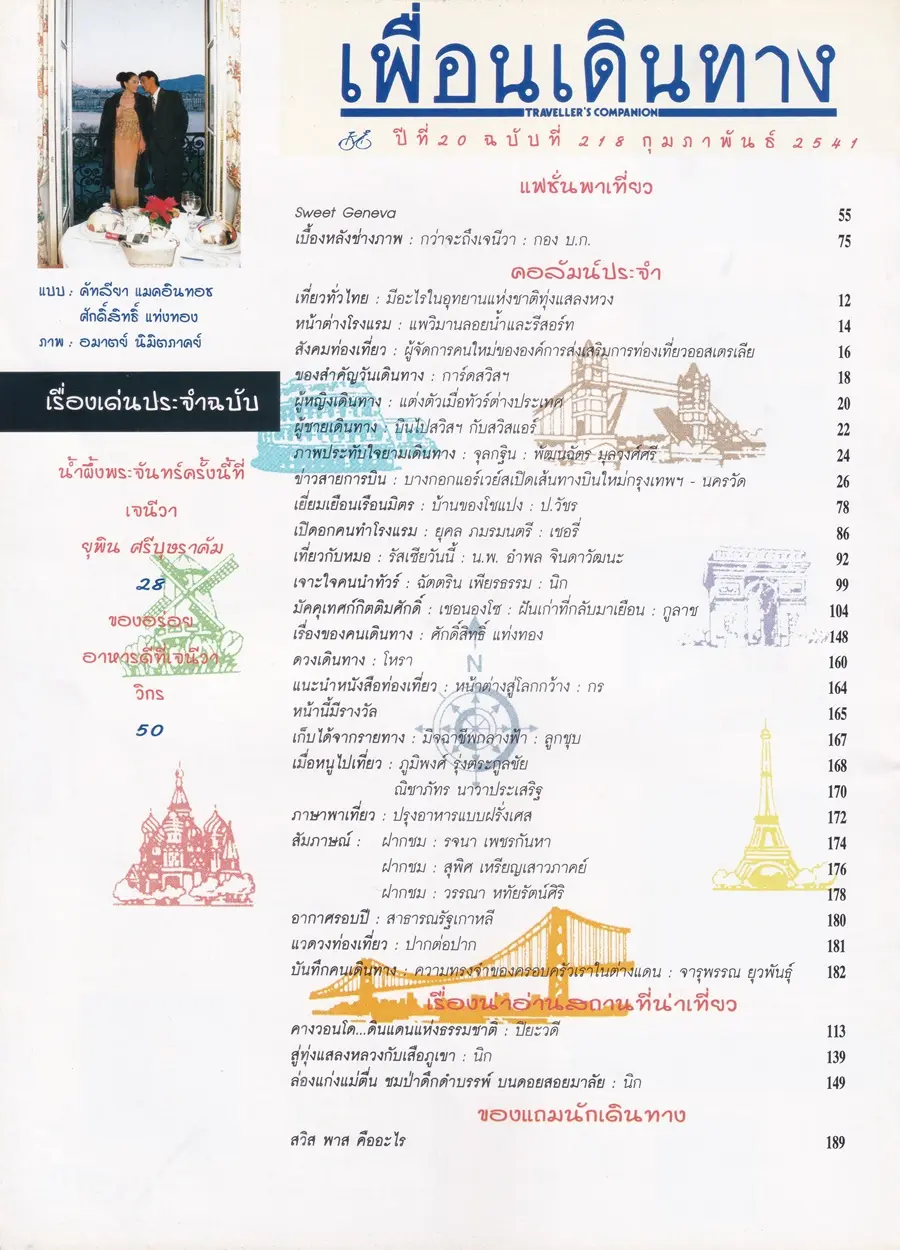 เพื่อนเดินทาง
TRAVELLER'S COMPANION
ปีที่ 20 ฉบับที่ 218 กุมภาพันธ์ 2541
แบบ : คัทลียา แมคอินทอช
ศักดิ์สิทธิ์ แท่งทอง
ภาพ : อมาตย์ นิมิตภาคย์
เรื่องเด่นประจำฉบับ
น้ำผึ้งพระจันทร์ครั้งนี้ที่
เจนีวา
ยุพิน ศรีบุษราคัม
28
ของอร่อย
อาหารดีที่เจนีวา
วิกร
50
แฟชั่นพาเที่ยว
Sweet Geneva 55
เบื้องหลังช่างภาพ : กว่าจะถึงเจนีวา : กอง บ.ก. 75
คอลัมน์ประจำ
เที่ยวทั่วไทย : มีอะไรในอุทยานแห่งชาติทุ่งแสลงหวง 12
หน้าต่างโรงแรม : แพวิมานลอยน้ำและรีสอร์ท 14
สังคมท่องเที่ยว : ผู้จัดการคนใหม่ขององค์การส่งเสริมการท่องเที่ยวออสเตรเลีย 16
ของสำคัญวันเดินทาง : การ์ดสวิสฯ 18
ผู้หญิงเดินทาง : แต่งตัวเมื่อทัวร์ต่างประเทศ 20
ผู้ชายเดินทาง : บินไปสวิสฯ กับสวิสแอร์ 22
ภาพประทับใจยามเดินทาง : จุลกฐิน : พัฒนฉัตร มุลวงศ์ศรี 24
ข่าวสายการบิน : บางกอกแอร์เวย์สเปิดเส้นทางบินใหม่กรุงเทพฯ - นครวัด 26
เยี่ยมเยือนเรือนมิตร : บ้านของโชแปง : ป.วัชร 78
เปิดอกคนทำโรงแรม : ยุคล ภมรมนตรี : เชอรี่ 86
เที่ยวกับหมอ : รัสเซียวันนี้ : น.พ. อำพล จินดาวัฒนะ 92
เจาะใจคนนำทัวร์ : ฉัตตริน เพียรธรรม : นิก 99
มัคคุเทศก์กิตติมศักดิ์ : เชอนองโซ : ฝันเก่าที่กลับมาเยือน : กูลาช 104
เรื่องของคนเดินทาง : ศักดิ์สิทธิ์ แท่งทอง 148
ดวงเดินทาง : โหรา 160
แนะนำหนังสือท่องเที่ยว : หน้าต่างสู่โลกกว้าง : กร 164
หน้านี้มีรางวัล 165
เก็บได้จากรายทาง : มิจฉาชีพกลางฟ้า : ลูกชุบ 167
เมื่อหนูไปเที่ยว : ภูมิพงศ์ รุ่งตระกูลชัย 168
ณิชาภัทร นาวาประเสริฐ 170
ภาษาพาเที่ยว : ปรุงอาหารแบบฝรั่งเศส 172
สัมภาษณ์ : ฝากชม : รจนา เพชรกันหา 174
ฝากชม : สุพิศ เหรียญเสาวภาคย์ 176
ฝากชม : วรรณา หทัยรัตน์ศิริ 178
อากาศรอบปี : สาธารณรัฐเกาหลี 180
แวดวงท่องเที่ยว : ปากต่อปาก 181
บันทึกคนเดินทาง : ความทรงจำของครอบครัวเราในต่างแดน : จารุพรรณ ยุวพันธุ์ 182
เรื่องน่าอ่านสถานที่น่าเที่ยว
คางวอนโด...ดินแดนแห่งธรรมชาติ : ปิยะวดี 113
สู่ทุ่งแสลงหลวงกับเสือภูเขา : นิก 139
ล่องแก่งแม่ตื่น ชมป่าดึกดำบรรพ์ บนดอยสอยมาลัย : นิก 149
ของแถมนักเดินทาง
สวิส พาส คืออะไร 189
N